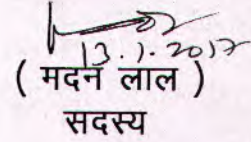 13.1.2017
( मदन लाल )
सदस्य